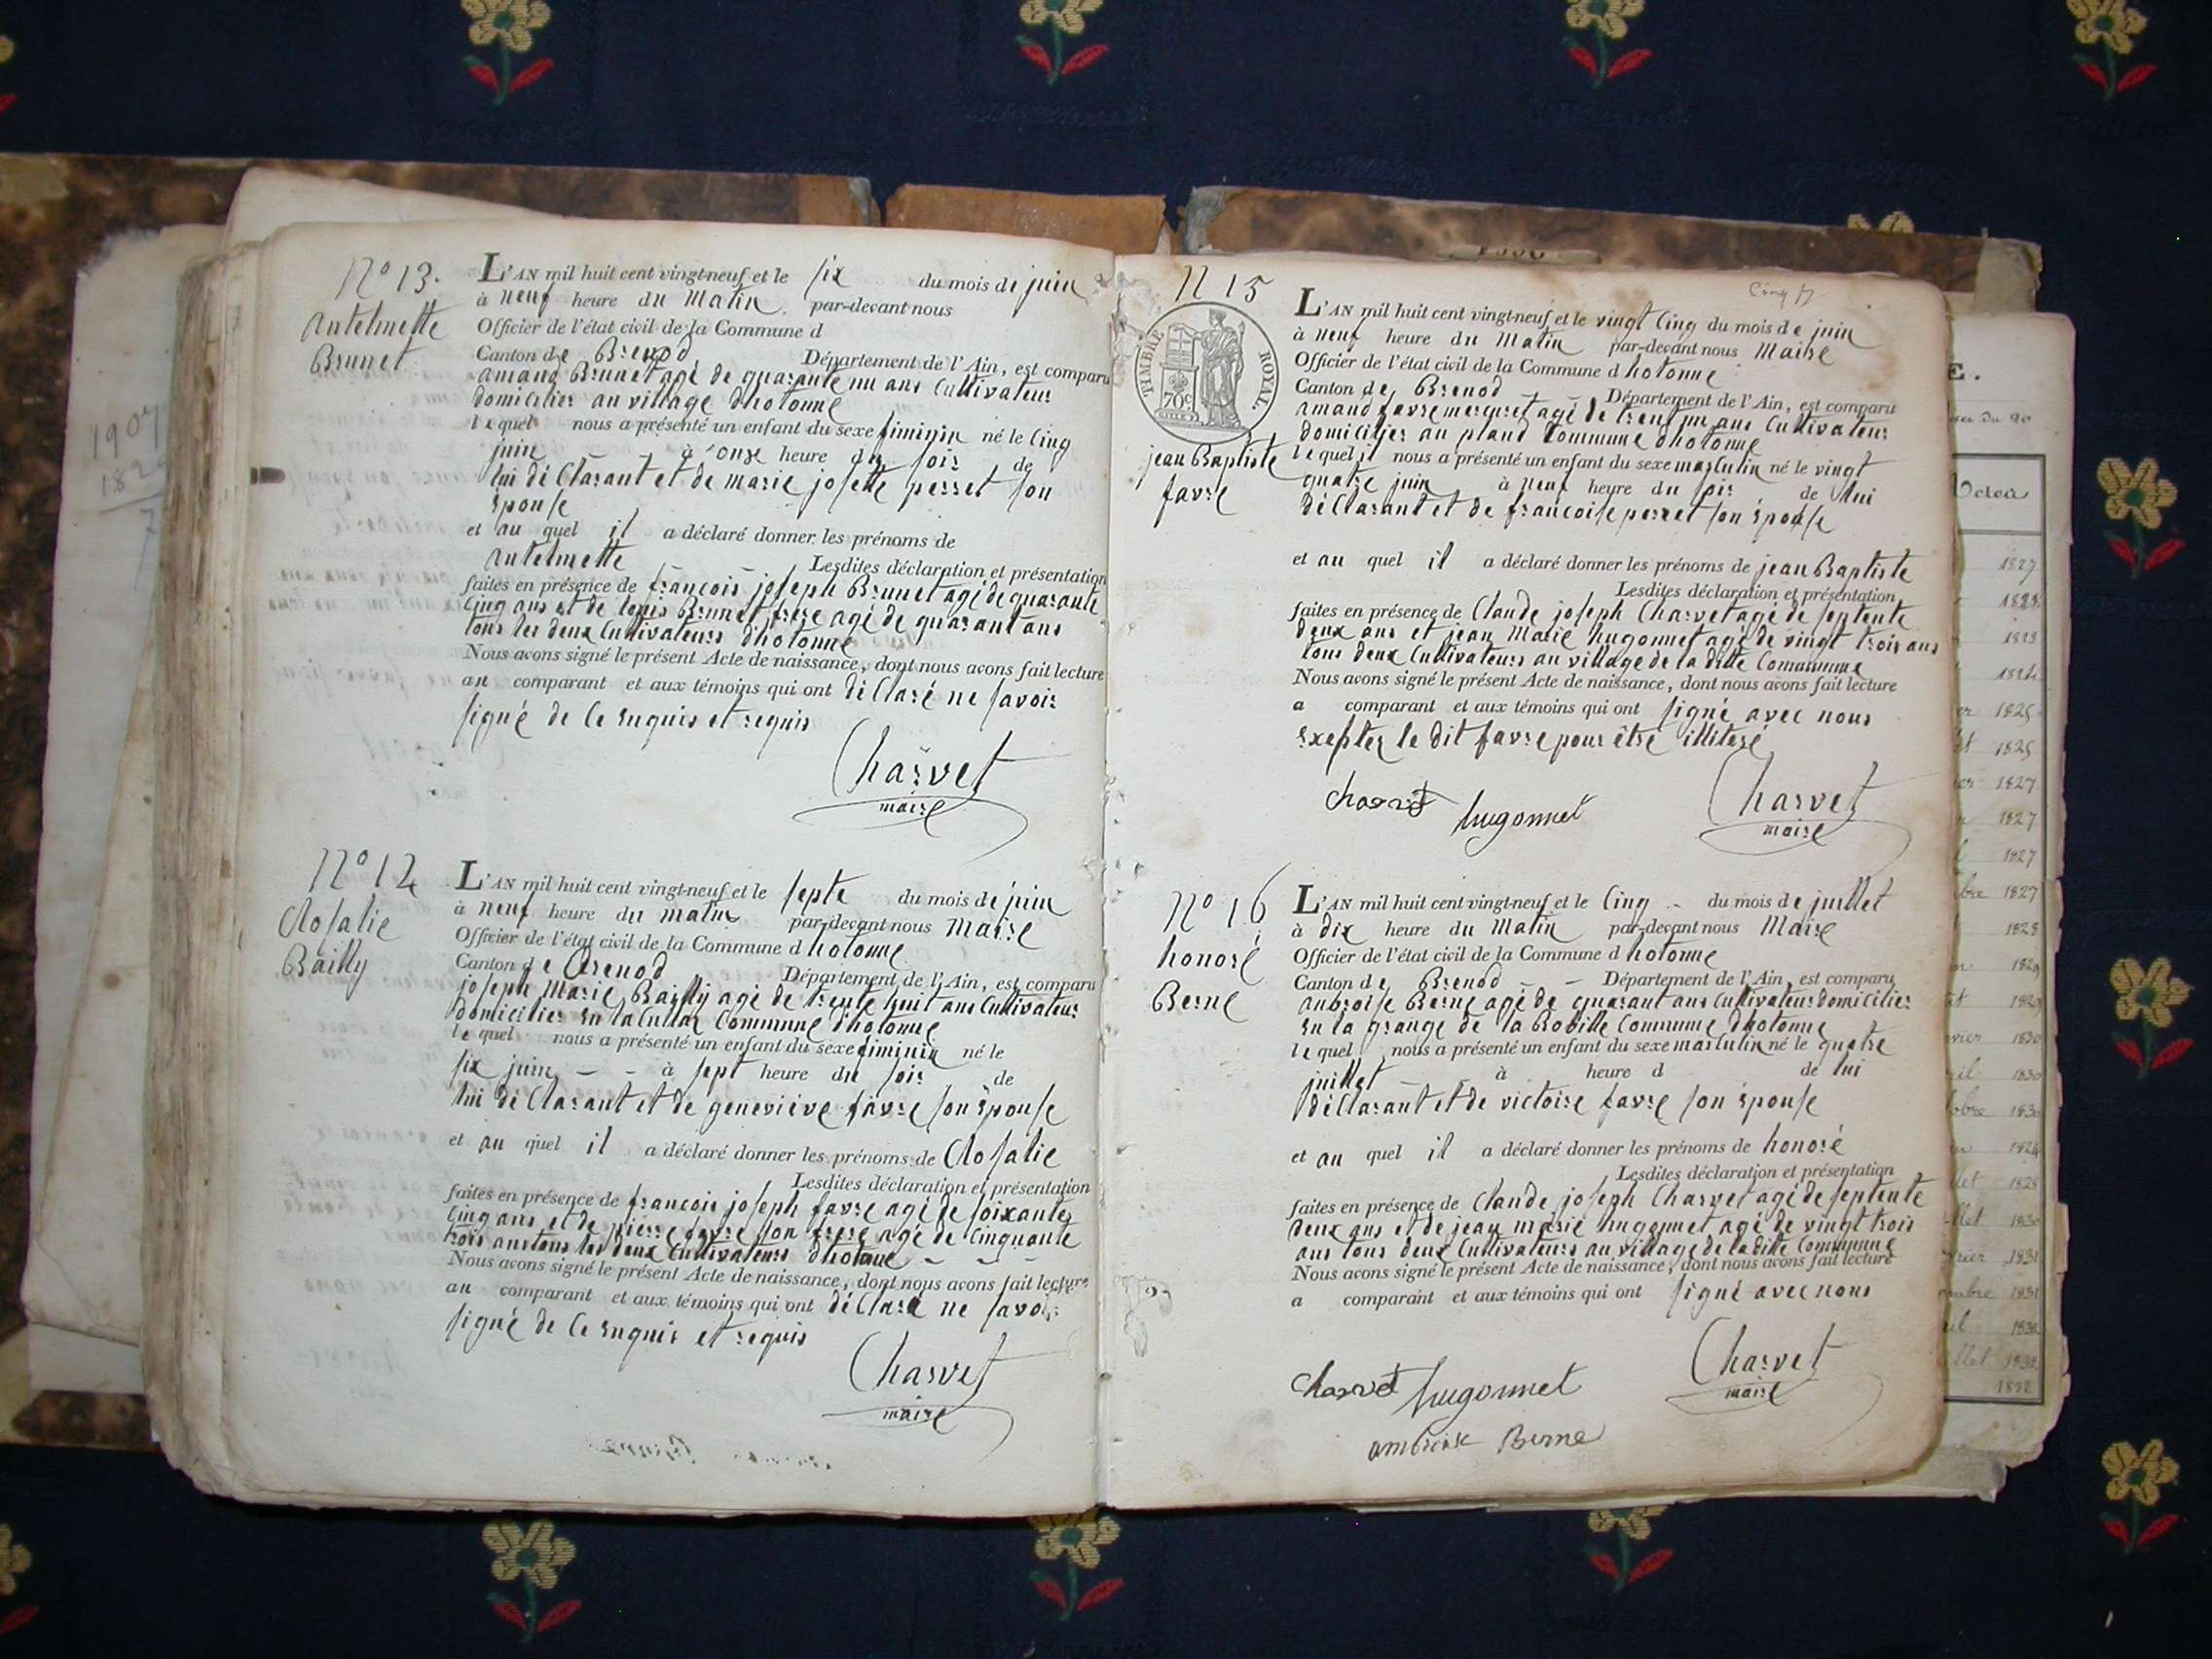 N° 13.
antelmette
Brunet
L'AN mil huit cent vingt-neuf et le six du mois de juin
à neuf heure du matin par-devant nous
Officier de l'état civil de la Commune d
Canton de Brenod Département de l'Ain, est comparu
amand Brunet agé de quarante un ans Cultivateur
domicilier au village dhotonne
lequel nous a présenté un enfant du sexe fiminin né le Cinq
juin à onze heure du soir de
lui déClarant et de marie josette perret son
épouse
et au quel il a déclaré donner les prénoms de
antelmette Lesdites déclaration et présentation
faites en présence de françois joseph Brunet agé de quarante
Cinq ans et de louis Brunet frere agé de quarant ans
tous les deux Cultivateurs dhotonne
Nous avons signé le présent Acte de naissance, dont nous avons fait lecture
au comparant et aux témoins qui ont déClaré ne savoir
signé de Ce enquis et requis
Charvet
maire
N° 14
Rosalie
Bailly
L'AN mil huit cent vingt-neuf et le septe du mois de juin
à neuf heure du matin par-devant nous Maire
Officier de l'état civil de la Commune d hotonne
Canton de Brenod Département de l'Ain, est comparu
joseph Marie Bailly agé de trente huit ans Cultivateur
domicilier en la Commune dhotonne
lequel nous a présenté un enfant du sexe fiminin né le
six juin à sept heure du soir de
lui déClarant et de geneviève favre son épouse
et au quel il a déclaré donner les prénoms de Rosalie
Lesdites déclaration et présentation
faites en présence de françois joseph favre agé de soixante
Cinq ans et de pierre favre son frere agé de Cinquante
trois ans tous les deux Cultivateurs dhotone
Nous avons signé le présent Acte de naissance, dont nous avons fait lecture
au comparant et aux témoins qui ont déClaré ne savoir
signé de Ce enquis et requis
Charvet
maire
N 15
TIMBRE ROYAL.
70c
jean Baptiste
favre
L'AN mil huit cent vingt-neuf et le vingt Cinq du mois de juin
à neuf heure du Matin par-devant nous Maire
Officier de l'état civil de la Commune d hotonne
Canton de Brenod Département de l'Ain, est comparu
amand favre agé de trent un ans Cultivateur
domicilier au pland Commune dhotonne
lequel il nous a présenté un enfant du sexe masculin né le vingt
quatre juin à neuf heure du soir de lui
déClarant et de françoise perret son épouse
et au quel il a déclaré donner les prénoms de jean Baptiste
Lesdites déclaration et présentation
faites en présence de Claude joseph Charvet agé de septente
deux ans et jean Marie hugonnet agé de vingt trois ans
tous deux Cultivateurs au village de la ditte Commune
Nous avons signé le présent Acte de naissance, dont nous avons fait lecture
a comparant et aux témoins qui ont signé avec nous
exepter le dit favre pour être illiteré
charvet hugonnet Charvet
maire
N° 16
honoré
Berne
L'AN mil huit cent vingt-neuf et le Cinq du mois de juillet
à dix heure du Matin par-devant nous Maire
Officier de l'état civil de la Commune d hotonne
Canton de Brenod Département de l'Ain, est comparu
anbroise Berne agé de quarant ans Cultivateur domicilier
en la grange de la Commune dhotonne
lequel nous a présenté un enfant du sexe masculin né le quatre
juillet à heure d de lui
déClarant et de victoire favre son épouse
et au quel il a déclaré donner les prénoms de honoré
Lesdites déclaration et présentation
faites en présence de Claude joseph Charvet agé de septente
deux ans et de jean marie hugonnet agé de vingt trois
ans tous deux Cultivateurs au village de la ditte Commune
Nous avons signé le présent Acte de naissance, dont nous avons fait lecture
a comparant et aux témoins qui ont signé avec nous
charvet hugonnet Charvet
maire
ambroise Berne